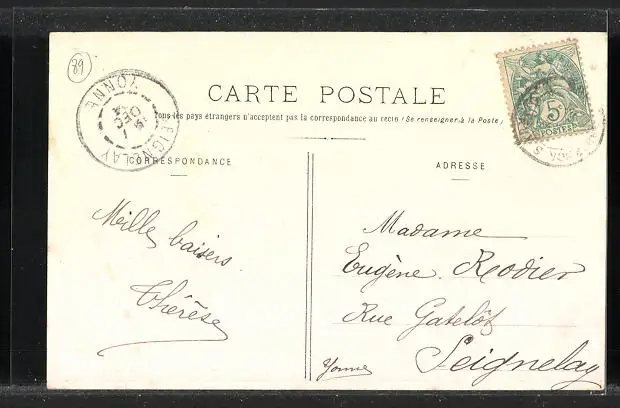 89
CARTE POSTALE
Tous les pays étrangers n'acceptent pas la correspondance au recto (Se renseigner à la Poste)
SEIGNELAY
DEC
YONNE
5
POSTES
CORRESPONDANCE
ADRESSE
Mille baisers
Thérèse
Madame
Eugène Rodier
Rue Gatelôt
Seignelay
Yonne